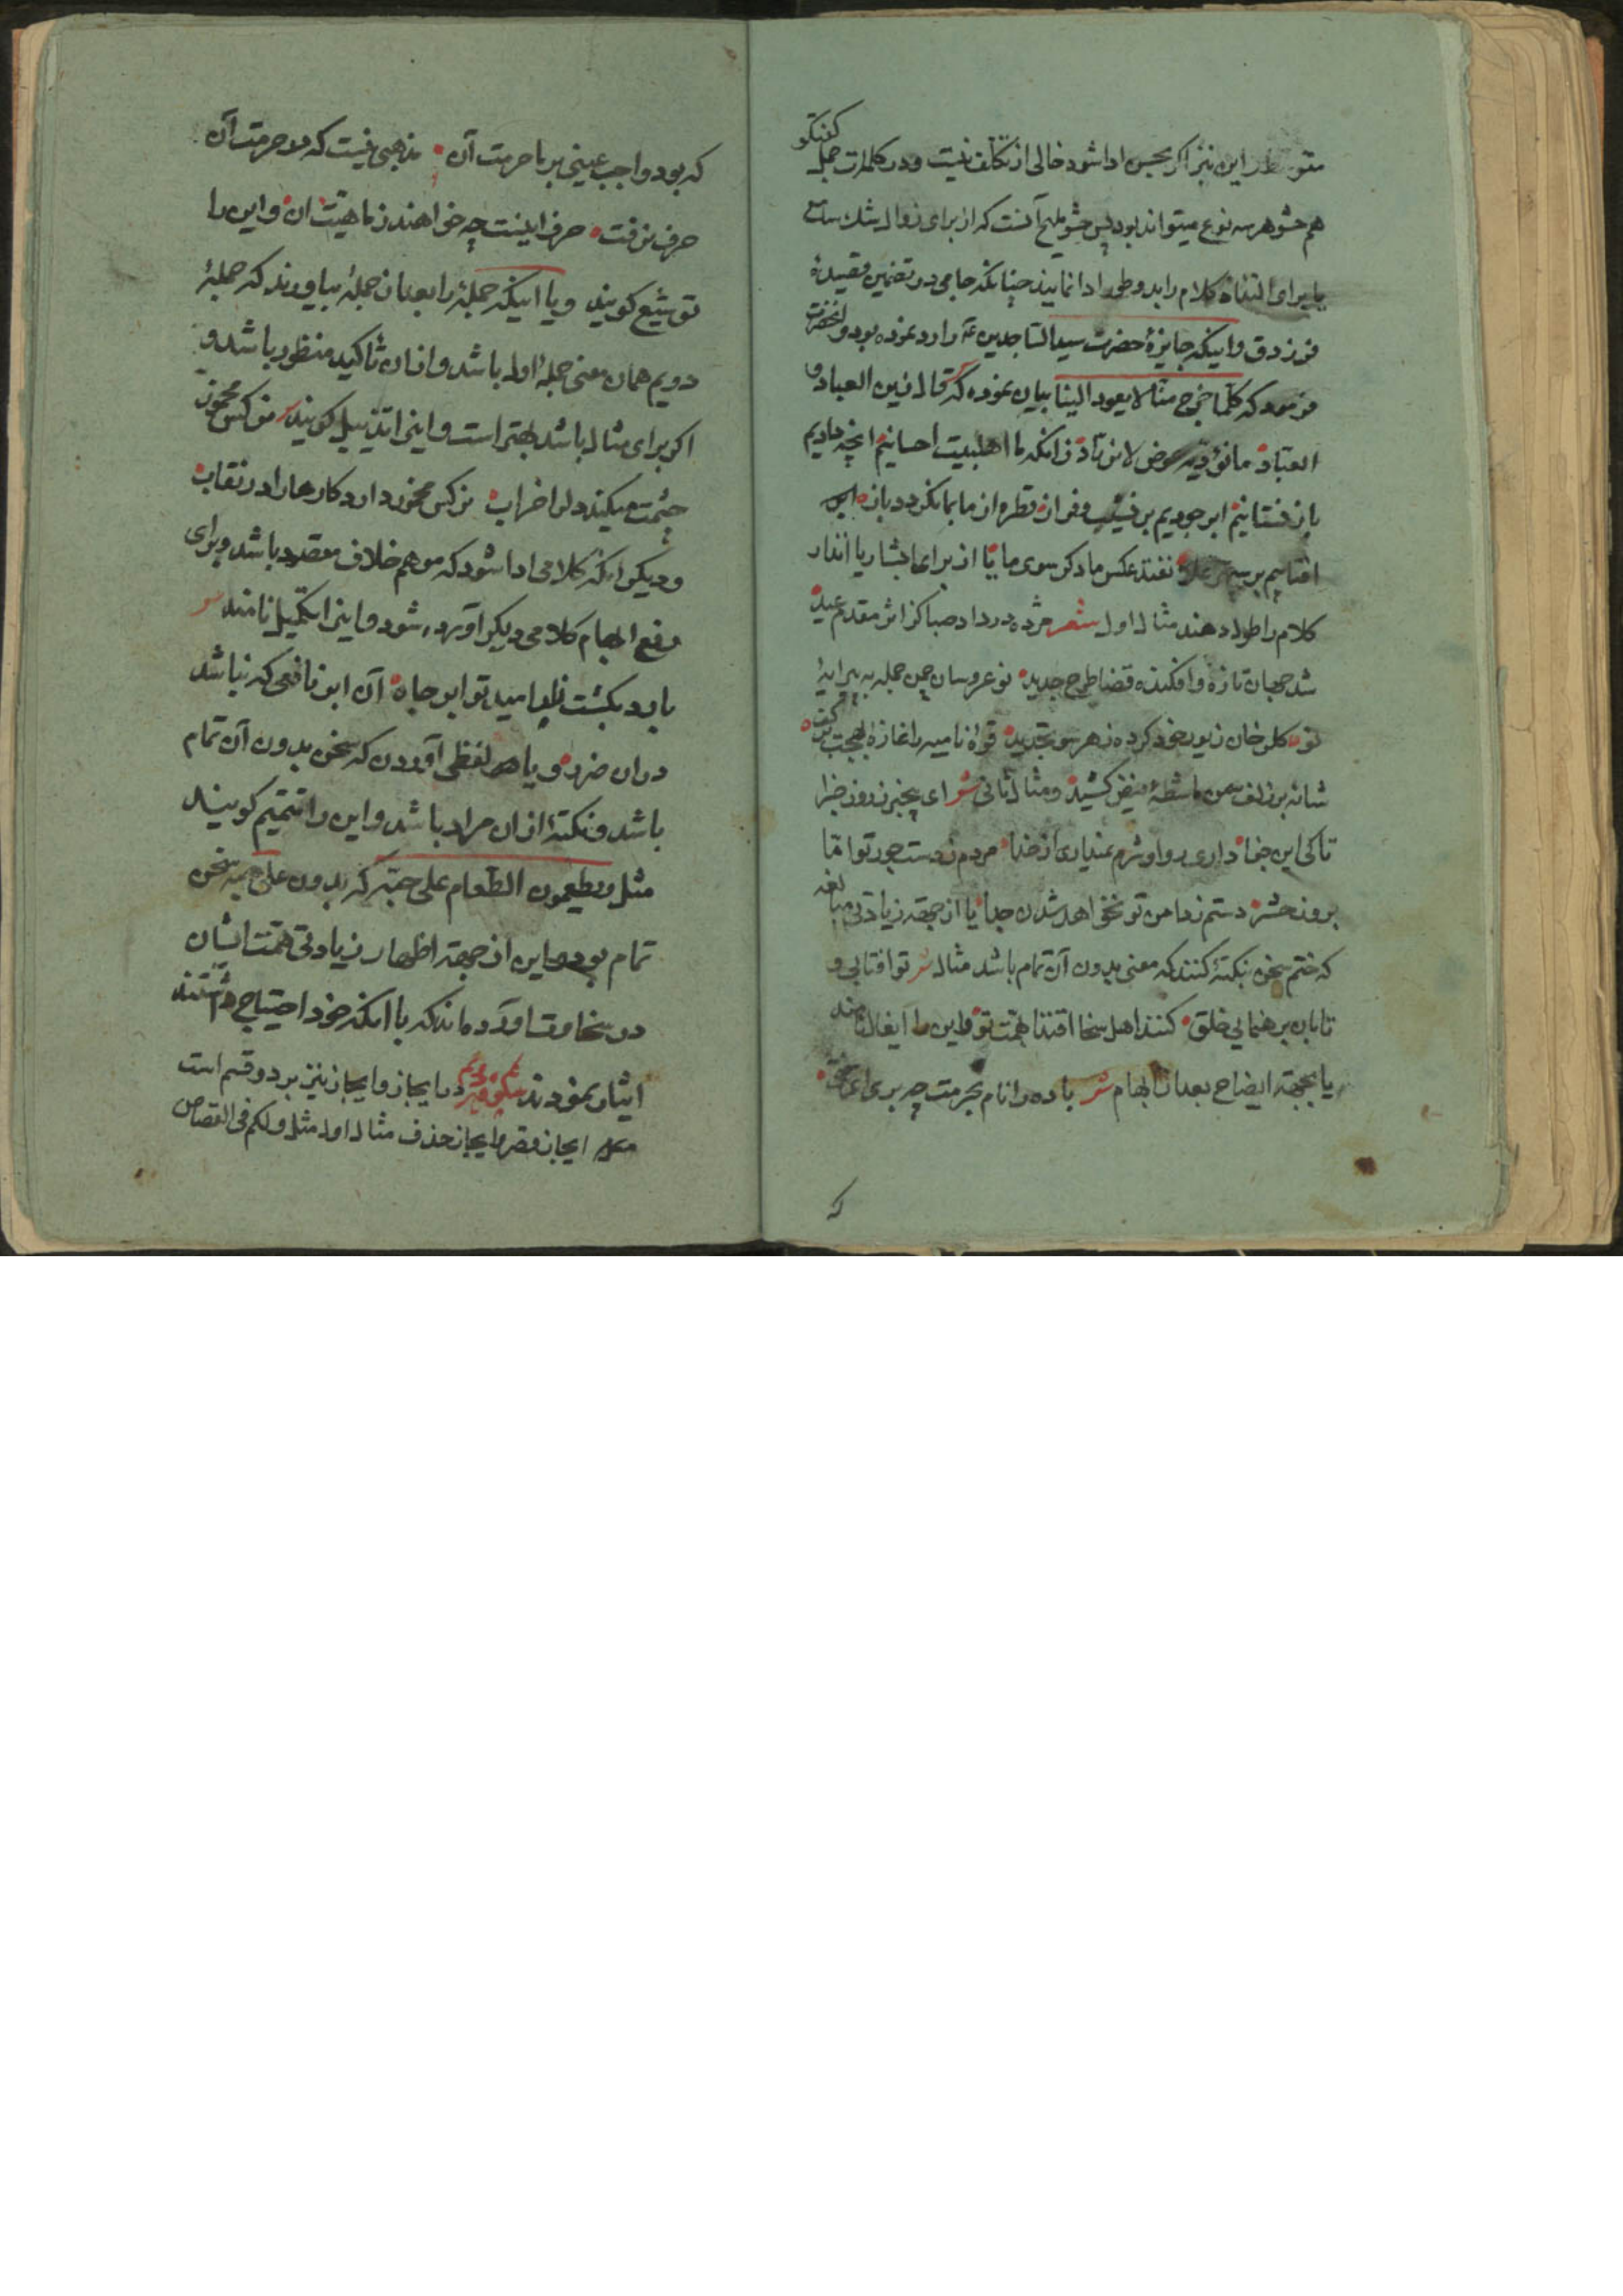 گفتگو
متوسط این نیز اگر بحسن ادا شود خالی از تکلف نیست و در کلمات جمله
هم حشو هر سه نوع میتواند بود پس حشو ملیح آنست که از برای زوال شك سامع
یا برای التذاذ کلام را بدو طور ادا نمایند چنانکه جامی در تضمین قصیدهٔ
فرزدق و اینکه جایزهٔ حضرت سید الساجدین ع را رد نموده بود و انحضرت
فرمود که کلما خرج منا لا یعود الینا بیان نموده که قال زین العباد و
العباد ما نؤدیه عوض لا نرتاد زانکه ما اهلبیت احسانیم انچه دادیم
باز نستانیم ابر جودیم بر نشیب و فراز قطره از ما بما نکردد باز
افتابیم بر سپهر علا نفتد عکس ما دکر سوی ما یا از برای ابشار یا انذار
کلام را طول دهند مثال اول شعر مژده در داد صبا کز اثر مقدم عید
شد جهان تازه و افکنده قضا طرح جدید نو عروسان چمن جمله به پیرایهٔ
نو کلرخان زیور خود کرده ز هر سو تجدید قوهٔ نامیه را غازه بهجت بر کف
شانه بر زلف سمن ماشطهٔ فیض کشید و مثال ثانی شعر ای بیخبر ز روز جزا
تا کی این جفا داری روا و شرم نمیداری از خدا مردم ز دست جور تو امّا
بروز حشر دستم ز دامن تو نخواهد شدن جدا یا از جهة زیادتی مبالغه
که ختم سخن بنکتهٔ کنند که معنی بدون آن تمام باشد مثال شعر تو افتابی و
تابان برهنمایی خلق کنند اهل سخا اقتدا بهمت تو و این را ایغال نامند
یا بجهة ایضاح بعد از ابهام شعر باده را نام بحرمت چه بری ای عاشق
که
که بود واجب عینی بر ما حرمت آن مذهبی نیست که در حرمت آن
حرف نرفت حرف اینست چه خواهند ز ماهیت ان و این را
توشیع کویند و یا اینکه جملهٔ را بعد از جملهٔ بیاورند که جملهٔ
دویم همان معنی جملهٔ اول باشد و از ان تاکید منظور باشد و
اکر برای مثال باشد بهتر است و اینرا تذییل کویند نرکس مخمور
چشمت میکند دلرا خراب نرکس مخمور دارد کارها را در نقاب
و دیکر انکه کلامی ادا شود که موهم خلاف مقصود باشد و برای
رفع ابهام کلامی دیکر آورده شود و اینرا تکمیل نامند شعر
بارد بکشت امید تو ابر جاه آن ابر نافعی که نباشد
در ان ضرر و یا هر لفظی آوردن که سخن بدون آن تمام
باشد و نکتهٔ از ان مراد باشد و این را تتمیم کویند
مثل و یطعمون الطعام علی حبه که بدون علی حبه سخن
تمام بود و این از جهة اظهار زیادتی همت ایشان
در سخاوت آورده اند که با آنکه خود احتیاج داشتند
ایثار نمودند در ایجاز و ایجاز نیز بر دو قسم است
ایجاز قصر و ایجاز حذف مثال اول مثل و لکم فی القصاص